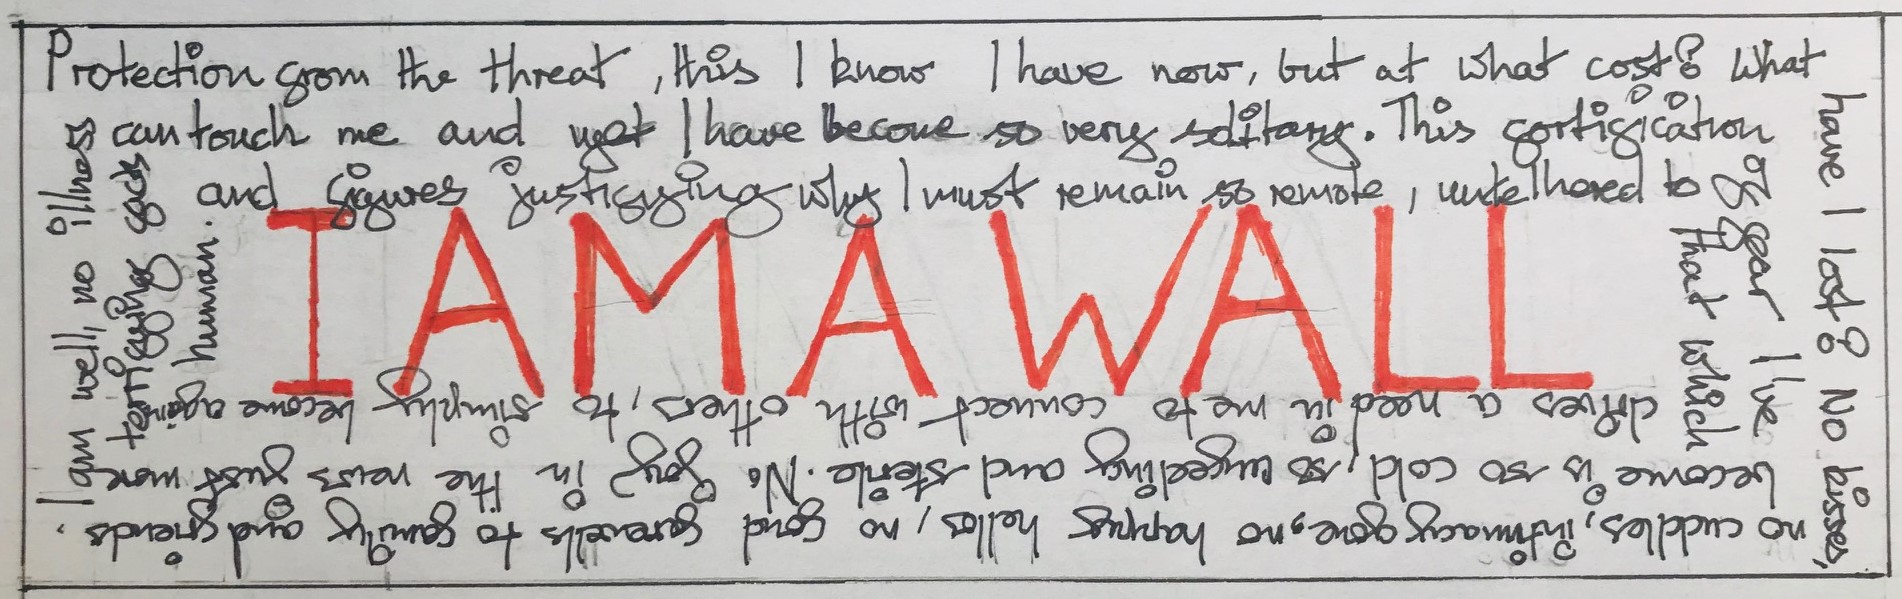 Protection from the threat, this I know I have now, but at what cost? What
have I lost? No kisses,
no cuddles, intimacy gone, no happy hellos, no fond farewells to family and friends.
I am well, no illness
can touch me and yet I have become so very solitary. This fortification
of fear I've
become is so cold, so unfeeling and sterile. No joy in the news just more
terrifying facts
and figures justifying why I must remain so remote, untethered to
that which
drives a need in me to connect with others, to simply become again
human.
I AM A WALL